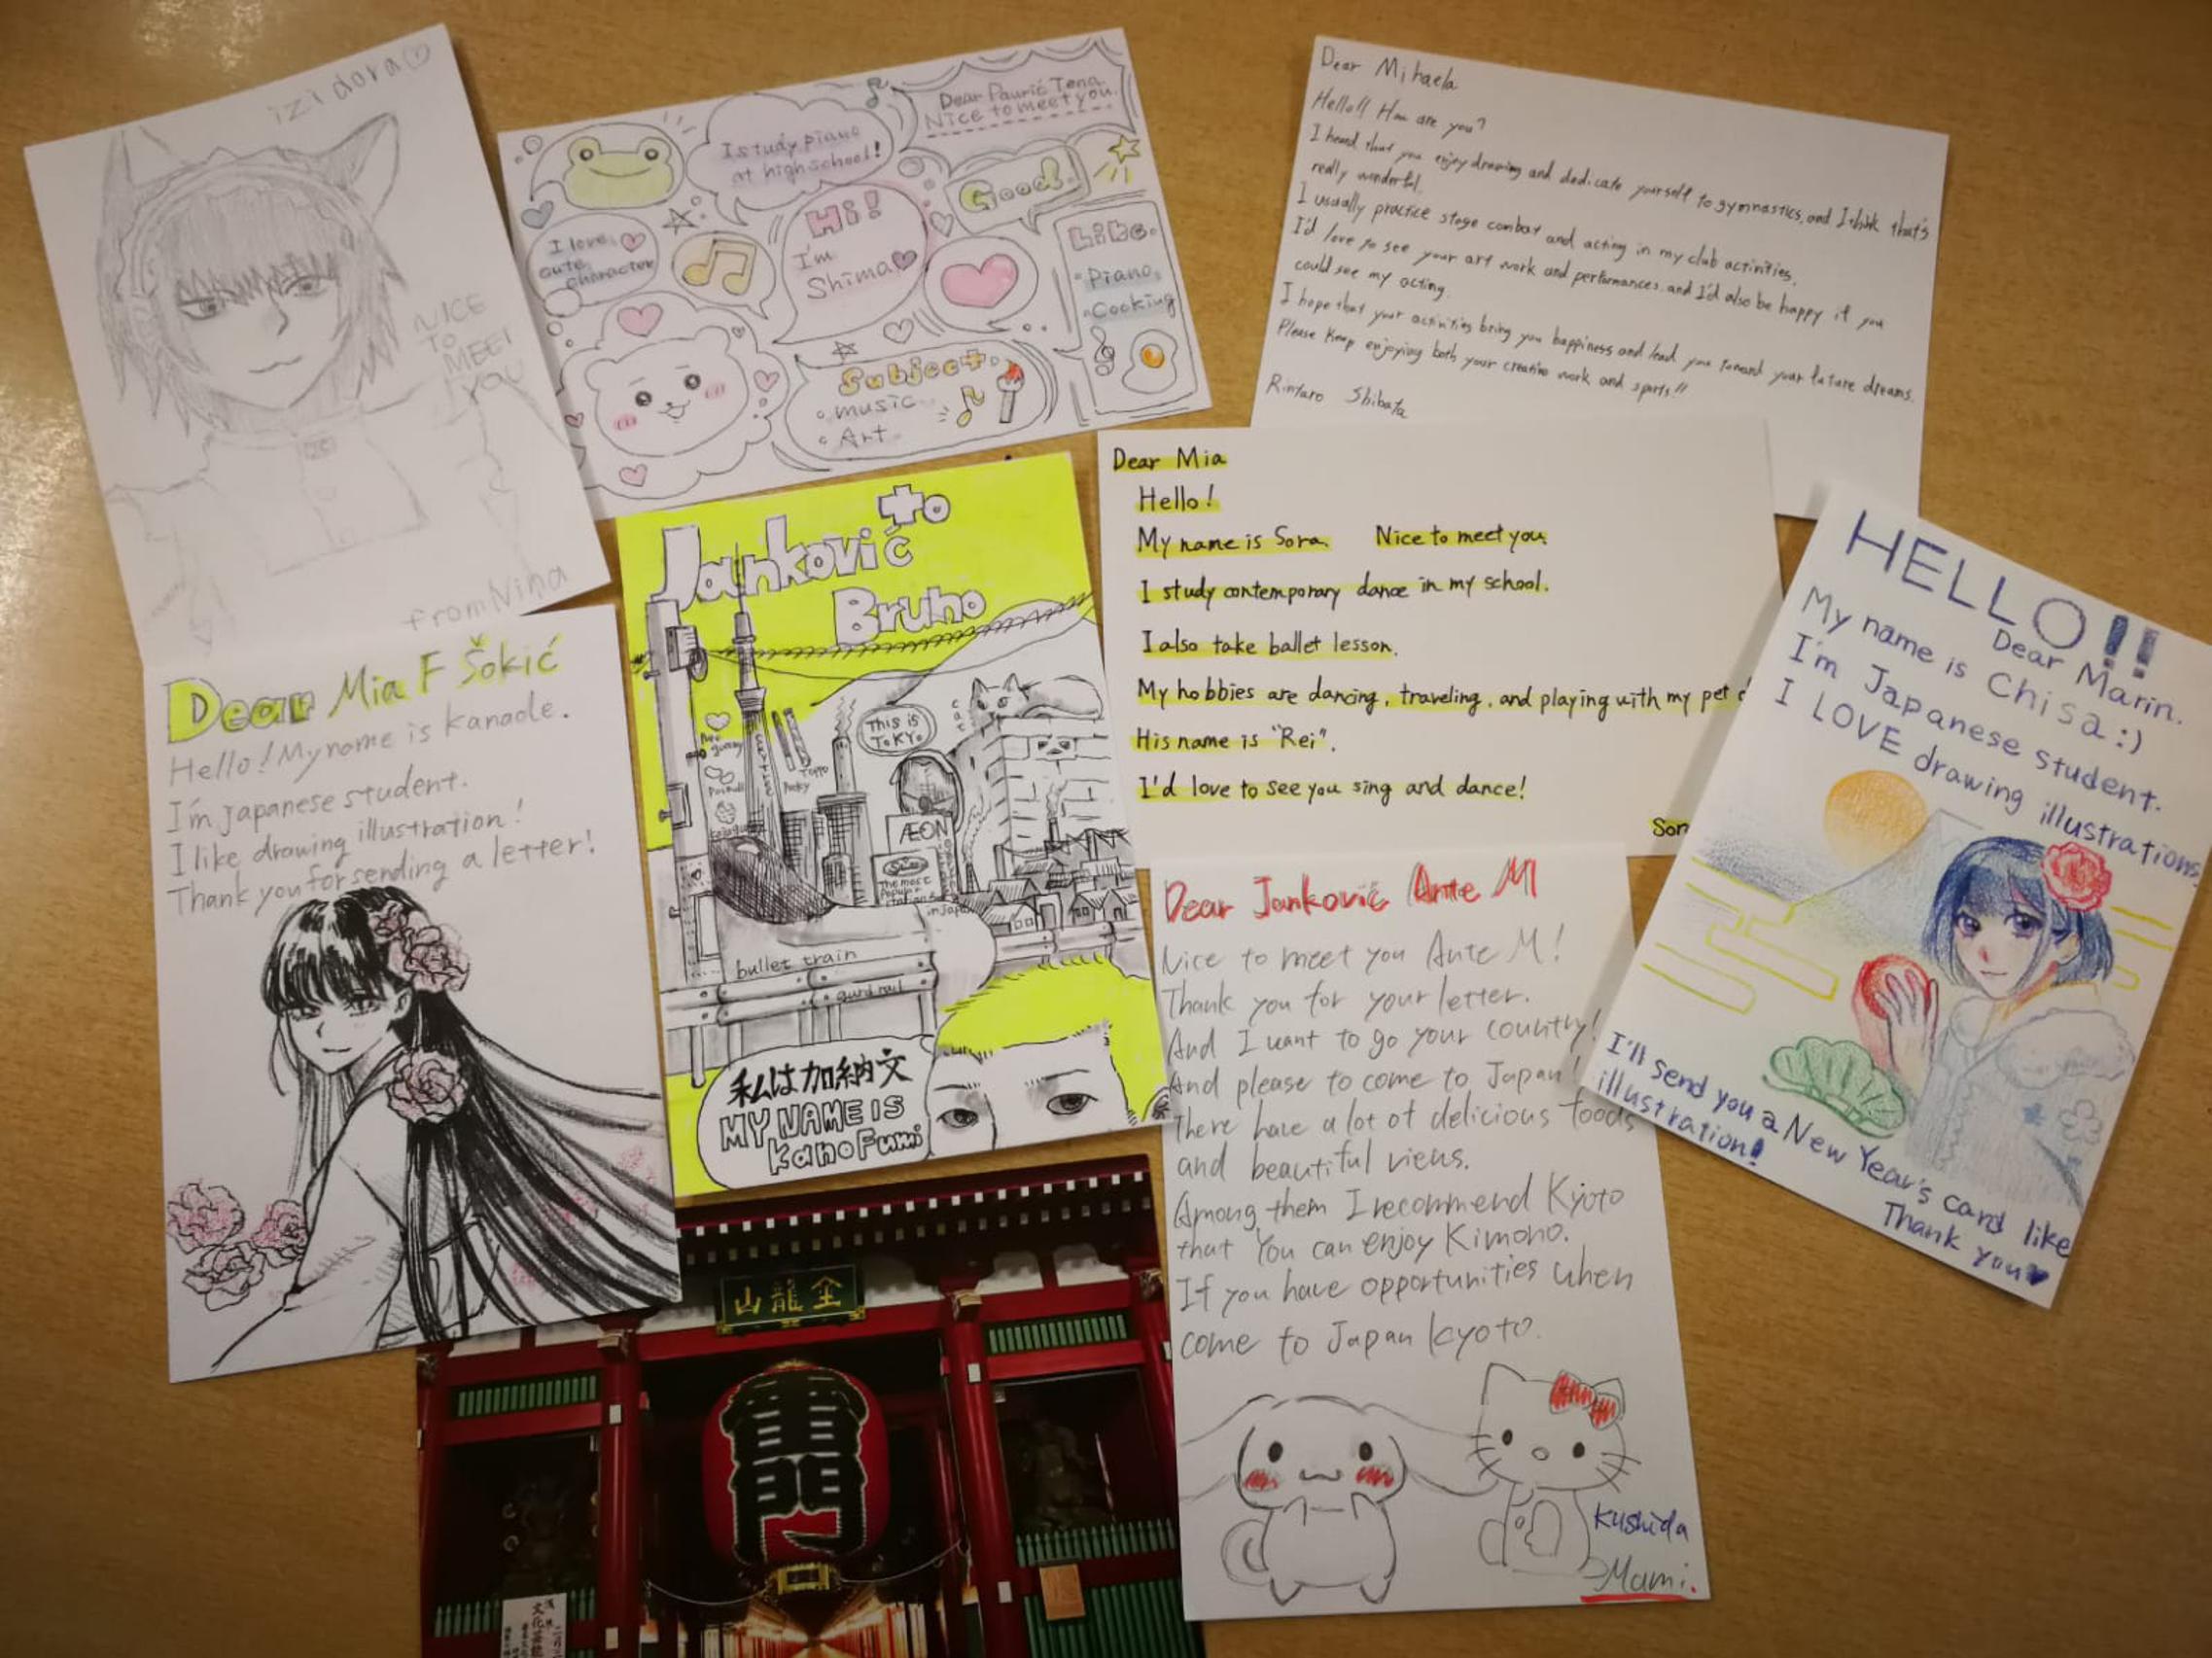 izidora
NICE
TO
MEET
YOU
from Nina
Dear Paurić Tena
Nice to meet you.
I study piano
at high school!
Hi!
I'm
Shima
Good.
I love
cute
character
Like.
Piano
Cooking
Subject.
music
Art
Dear Mihaela
Hello!! How are you?
I heard that you enjoy drawing and dedicate yourself to gymnastics, and I think that's
really wonderful.
I usually practice stage combat and acting in my club activities.
I'd love to see your art work and performances, and I'd also be happy if you
could see my acting.
I hope that your activities bring you happiness and lead you toward your future dreams.
Please keep enjoying both your creative work and sports!!
Rintaro Shibata
Dear Mia
Hello!
My name is Sora. Nice to meet you.
I study contemporary dance in my school.
I also take ballet lesson.
My hobbies are dancing, traveling, and playing with my pet
His name is "Rei".
I'd love to see you sing and dance!
Sor
HELLO!!
Dear Marin.
My name is Chisa :)
I'm Japanese student.
I LOVE drawing illustrations.
I'll send you a New Year's card like
illustration!
Thank you
Dear Mia F Šokić
Hello! My name is Kanade.
I'm japanese student.
I like drawing illustration!
Thank you for sending a letter!
to
Janković
Bruno
This is
TOKYO
cat
Toppo
Pocky
ÆON
The most
Popular
in Japan
bullet train
guard rail
私は加納文
MY NAME IS
Kano Fumi
Dear Janković Ante M
Nice to meet you Ante M!
Thank you for your letter.
And I want to go your country!
And please to come to Japan!
There have a lot of delicious foods
and beautiful views.
Among them I recommend Kyoto
that You can enjoy Kimono.
If you have opportunities when
come to Japan Kyoto.
Kushida
Mami.
山龍金
雷門